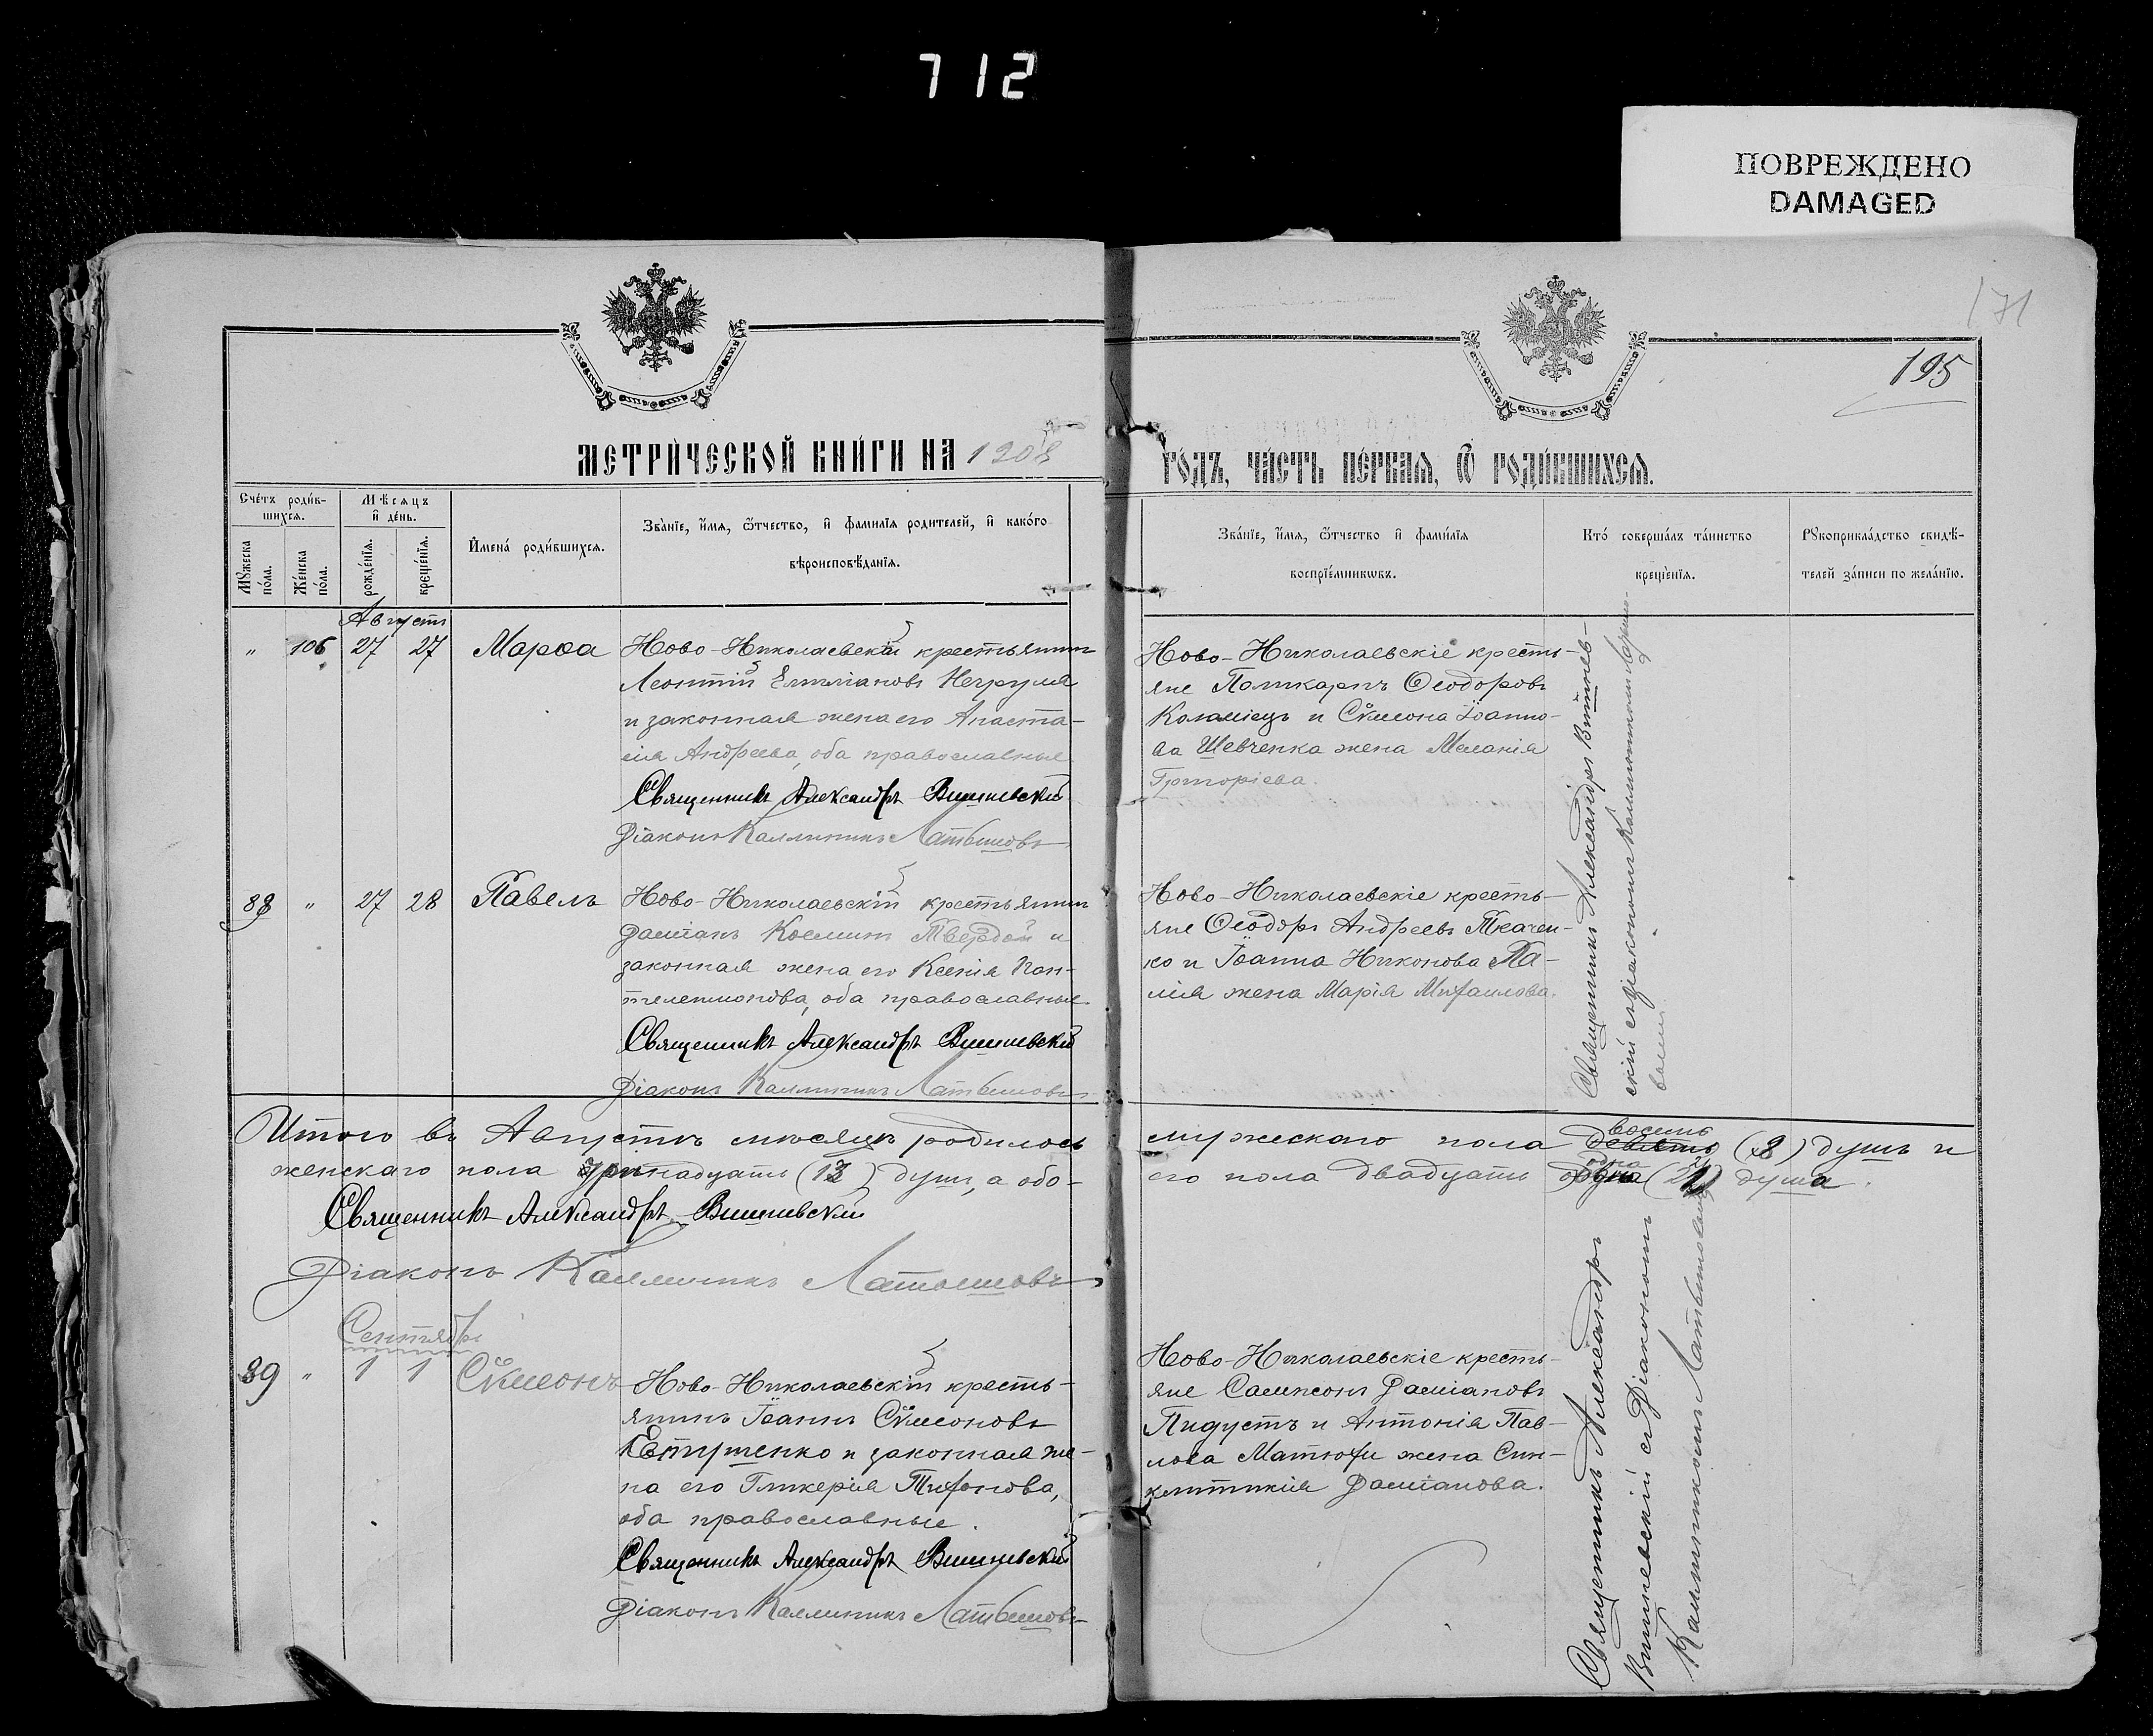 712
ПОВРЕЖДЕНО
DAMAGED
171
195
МЕТРИ́ЧЕСКОЙ КНИ́ГИ НА 1908
ГО́ДЪ, ЧА́СТЬ ПЕ́РВАЯ, Ѿ РОДИ́ВШИХСЯ.
Сче́тъ роди́в-
шихся.
Мѣсяцъ
и де́нь.
Му́жеска
по́ла.
Же́нска
по́ла.
рожде́нїя.
креще́нїя.
Имена́ роди́вшихся.
Зва́нїе, и́мя, ѻ́тчество, и фамилїя родителей, и како́го
вѣроисповѣданїя.
Зва́нїе, и́мя, ѻ́тчество и фами́лїя
воспрїе́мниковъ.
Кто́ соверша́лъ та́инство
креще́нїя.
Рукоприкла́дство свидѣ́-
телей за́писи по жела́нїю.
Августъ
" 106 27 27 Марѳа
Ново-Николаевскій крестьянинъ
Леонтій Емиліановъ Негруля
и законная жена его Анаста-
сія Андреева, оба православные
Священникъ Александръ Вишневскій
Діаконъ Каллиникъ
Ново-Николаевскіе кресть-
яне Поликарпъ Ѳеодоровъ
Коломіецъ и Сѵмеона Іоанно-
ва Шевченка жена Меланія
Григоріева.
Священникъ Александръ Вишнев-
скій съ діакономъ Каллиникомъ
88 " 27 28 Павелъ
Ново-Николаевскій крестьянинъ
Даміанъ Космин Твердой и
законная жена его Ксенія Пан-
телеимонова, оба православные
Священникъ Александръ Вишневскій
Діаконъ Каллиникъ
Ново-Николаевскіе кресть-
яне Ѳеодоръ Андреевъ Ткачен-
ко и Іоанна Никонова Па-
лія жена Марія Михаилова.
Итого въ Августѣ мѣсяцѣ родилось
мужескаго пола девять восемь (8) душъ и
женскаго пола тринадцать (13) душъ, а обо-
его пола двадцать одна (21) душа.
Священникъ Александръ Вишневскій
Діаконъ Каллиникъ
Сентябрь
89 " 1 1 Сѵмеонъ
Ново-Николаевскій кресть-
янинъ Іоаннъ Сѵмеоновъ
Евтушенко и законная же-
на его Гликерія Тифонова,
оба православные.
Священникъ Александръ Вишневскій
Діаконъ Каллиникъ
Ново-Николаевскіе кресть-
яне Сампсонъ Даміановъ
Пидустъ и Антонія Пав-
лова Матюхи жена Син-
клитикія Даміанова.
Священникъ Александръ
Вишневскій съ Діакономъ
Каллиникомъ